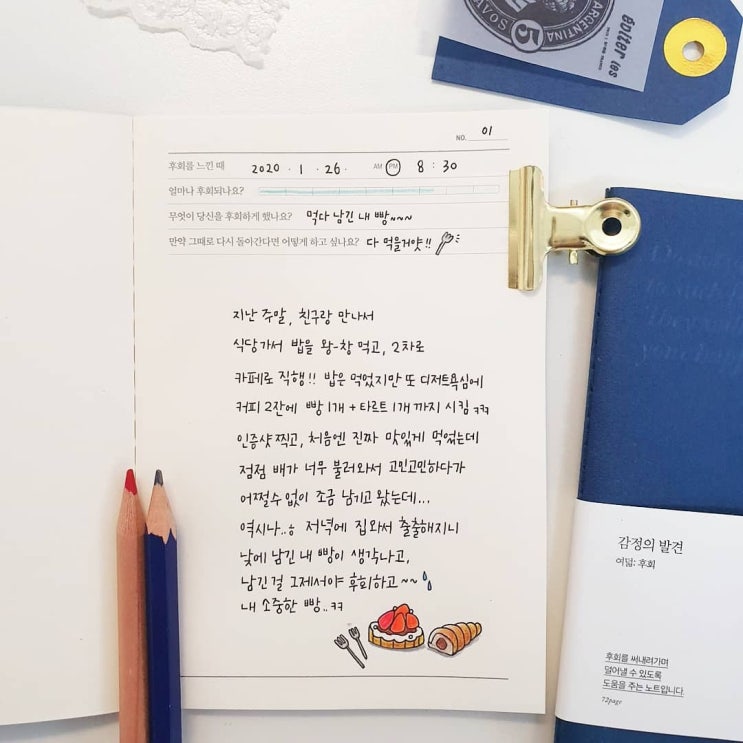 ARGENTINA
5
NO. 01
후회를 느낀 때 2020 . 1 . 26 . AM PM 8 : 30
얼마나 후회되나요?
무엇이 당신을 후회하게 했나요? 먹다 남긴 내 빵~~~
만약 그때로 다시 돌아간다면 어떻게 하고 싶나요? 다 먹을거얏!!
지난 주말, 친구랑 만나서
식당가서 밥을 왕-창 먹고, 2차로
카페로 직행!! 밥은 먹었지만 또 디저트욕심에
커피 2잔에 빵 1개 + 타르트 1개 까지 시킴 ㅋㅋㅋ
인증샷찍고, 처음엔 진짜 맛있게 먹었는데
점점 배가 너무 불러와서 고민고민하다가
어쩔수 없이 조금 남기고 왔는데...
역시나..ㅎ 저녁에 집와서 출출해지니
낮에 남긴 내 빵이 생각나고,
남긴걸 그제서야 후회하고~~
내 소중한 빵..ㅋㅋ
감정의 발견
여덟: 후회
후회를 써내려가며
덜어낼 수 있도록
도움을 주는 노트입니다.
72page